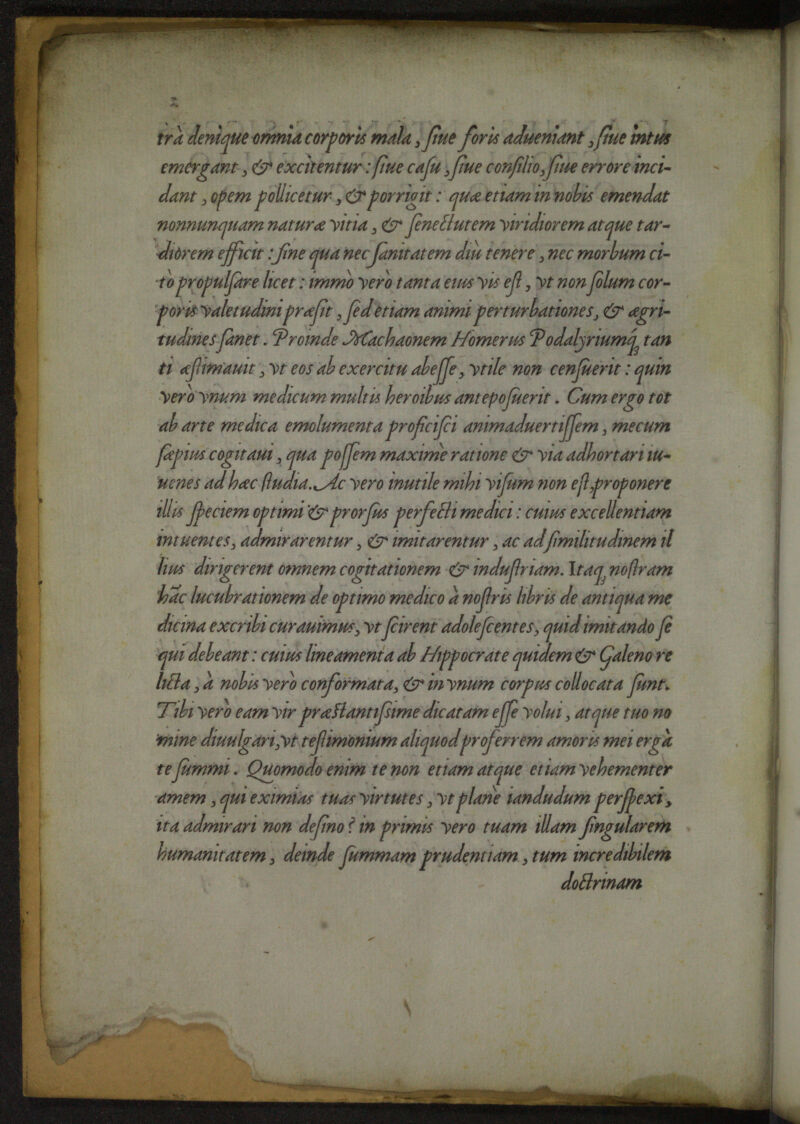 2
trà denique omnia corporis mala, siue foris adueniant, siue intus
emergant, & excitentur: siue casu, siue consilio, siue errore inci-
dant, opem pollicetur, & porrigit: quæ etiam in nobis emendat
nonnunquam naturæ vitia, & senectutem viridiorem atque tar-
diorem efficit: sine qua nec sanitatem diu tenere, nec morbum ci-
tò propulsare licet: immò verò tanta eius vis est, vt non solum cor-
poris valetudini præsit, sed etiam animi perturbationes, & ægri-
tudines sanet. Proinde Machaonem Homerus Podalyriumq́; tan
ti æstimauit, vt eos ab exercitu abesse, vtile non censuerit: quin
verò vnum medicum multis heroibus anteposuerit. Cum ergo tot
ab arte medica emolumenta proficisci animaduertissem, mecum
sæpius cogitaui, qua possem maximè ratione & via adhortari iu-
uenes ad hæc studia. Ac vero inutile mihi visum non est, proponere
illis speciem optimi & prorsus perfecti medici: cuius excellentiam
intuentes, admirarentur, & imitarentur, ac ad similitudinem il
lius dirigerent omnem cogitationem & industriam. Itaq; nostram
hāc lucubrationem de optimo medico à nostris libris de antiqua me
dicina excribi curauimus, vt scirent adolescentes, quid imitando se
qui debeant: cuius lineamenta ab Hippocrate quidem & Galeno re
licta, à nobis verò conformata, & in vnum corpus collocata sunt.
Tibi verò eam vir præstantissime dicatam esse volui, atque tuo no
mine diuulgari, vt testimonium aliquod proferrem amoris mei ergà
te summi. Quomodo enim te non etiam atque etiam vehementer
amem, qui eximias tuas virtutes, vt planè iandudum perspexi,
ita admirari non desino? in primis vero tuam illam singularem
humanitatem, deinde summam prudentiam, tum incredibilem
doctrinam